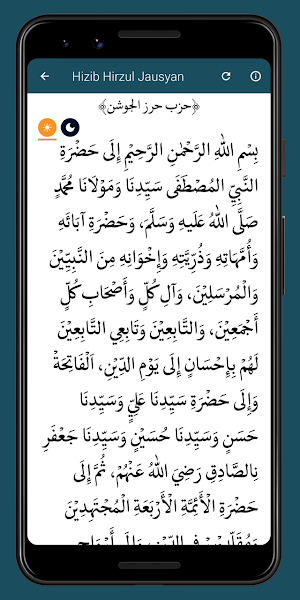 Hizib Hirzul Jausyan
﴿حزب حرز الجوشن﴾
بِسْمِ اللهِ الرَّحْمٰنِ الرَّحِيْمِ إِلَى حَضْرَةِ
النَّبِيِّ الْمُصْطَفَى سَيِّدِنَا وَمَوْلَانَا مُحَمَّدٍ
صَلَّى اللهُ عَلَيهِ وَسَلَّمَ، وَحَضْرَةِ آبَائَهِ
وَأُمَّهَاتِهِ وَذُرِّيَّتِهِ وَإِخْوَانِهِ مِنَ النَّبِيِّيْنَ
وَالْمُرسَلِيْنَ، وَآلِ كُلٍّ وَأَصْحَابِ كُلٍّ
أَجْمَعِيْنَ، وَالتَّابِعَيْنَ وَتَابِعِي التَّابِعَيْنَ
لَهُمْ بِإِحْسَانٍ إِلَى يَوْمِ الدِّيْنِ، اَلْفَاتِحَةْ
وَإِلَى حَضْرَةِ سَيِّدِنَا عَلِيٍّ وَسَيِّدِنَا
حَسَنٍ وَسَيِّدِنَا حُسَيْنٍ وَسَيِّدِنَا جَعْفَرِ
نِالصَّادِقِ رَضِيَ اللهُ عَنْهُمْ، ثُمَّ إِلَى
حَضْرَةِ الْأَئِمَّةِ الْأَرْبَعَةِ الْمُجْتَهِدِيْنَ